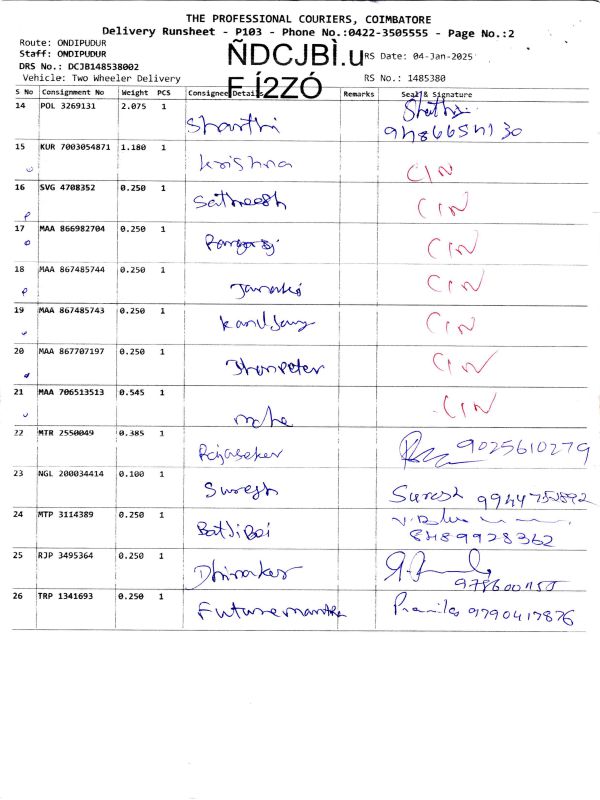 THE PROFESSIONAL COURIERS, COIMBATORE
Delivery Runsheet - P103 - Phone No.:0422-3505555 - Page No.:2
Route: ONDIPUDUR
Staff: ONDIPUDUR
DRS No.: DCJB148538002
Vehicle: Two Wheeler Delivery
ÑDCJBÌ.u
F Í2ZÓ
RS Date: 04-Jan-2025
RS No.: 1485380
S No Consignment No Weight PCS Consignee Details Remarks Seal & Signature
14 POL 3269131 2.075 1 Sharthi
15 KUR 7003054871 1.180 1 Krishna CIN
16 SVG 4708352 0.250 1 Satheesh CIN
17 MAA 866982704 0.250 1 CIN
18 MAA 867485744 0.250 1 Janaki CIN
19 MAA 867485743 0.250 1 CIN
20 MAA 867707197 0.250 1 CIN
21 MAA 706513513 0.545 1 CIN
22 MTR 2550049 0.385 1 Rajaseker 9025610279
23 NGL 200034414 0.100 1 Suresh Suresh
24 MTP 3114389 0.250 1 8489928362
25 RJP 3495364 0.250 1 Dhinaker
26 TRP 1341693 0.250 1 9790417876